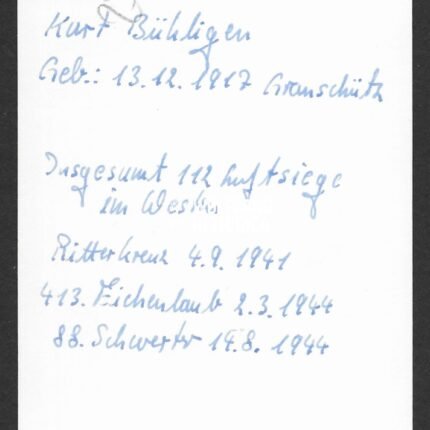 Kurt Bühligen
Geb.: 13.12.1917 Granschütz
Insgesamt 112 Luftsiege
im Westen
Ritterkreuz 4.9.1941
413. Eichenlaub 2.3.1944
88. Schwerter 14.8.1944